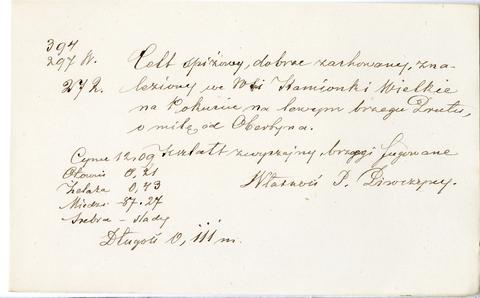 394
297 W. Celt spiżowy, dobrze zachowany, zna-
272. leziony we Wsi Kamionki Wielkie
na Pokuciu na lewym brzegu Prutu,
o milę od Obertyna.
Cyny 12.09 Kształt zwyczajny, brzegi fugowane
Ołowiu 0,21
Żelaza 0,43 Własność P.
Miedzi - 87.27
Srebra - ślady
Długość 0,111 m.